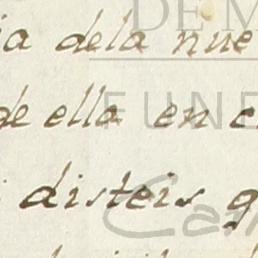 ia dela nue
de ella en c
disteis q
DE M
FUNE